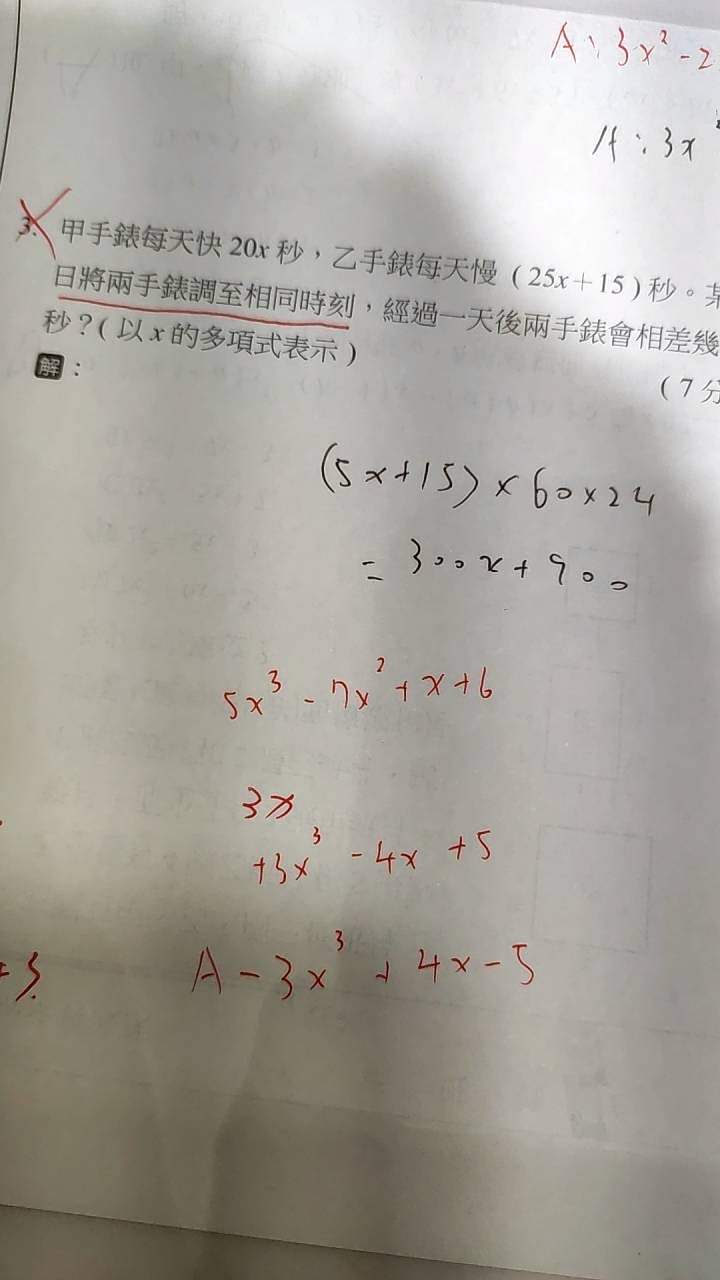 A：3x² - 2
A：3x
3. 甲手錶每天快 20x 秒，乙手錶每天慢（25x＋15）秒。某
日將兩手錶調至相同時刻，經過一天後兩手錶會相差幾
秒？（以 x 的多項式表示）
（7 分
解：
(5x+15) × 60×24
= 300x + 900
5x³ - 7x² + x + 6
3x
+3x³ - 4x + 5
A - 3x³ + 4x - 5